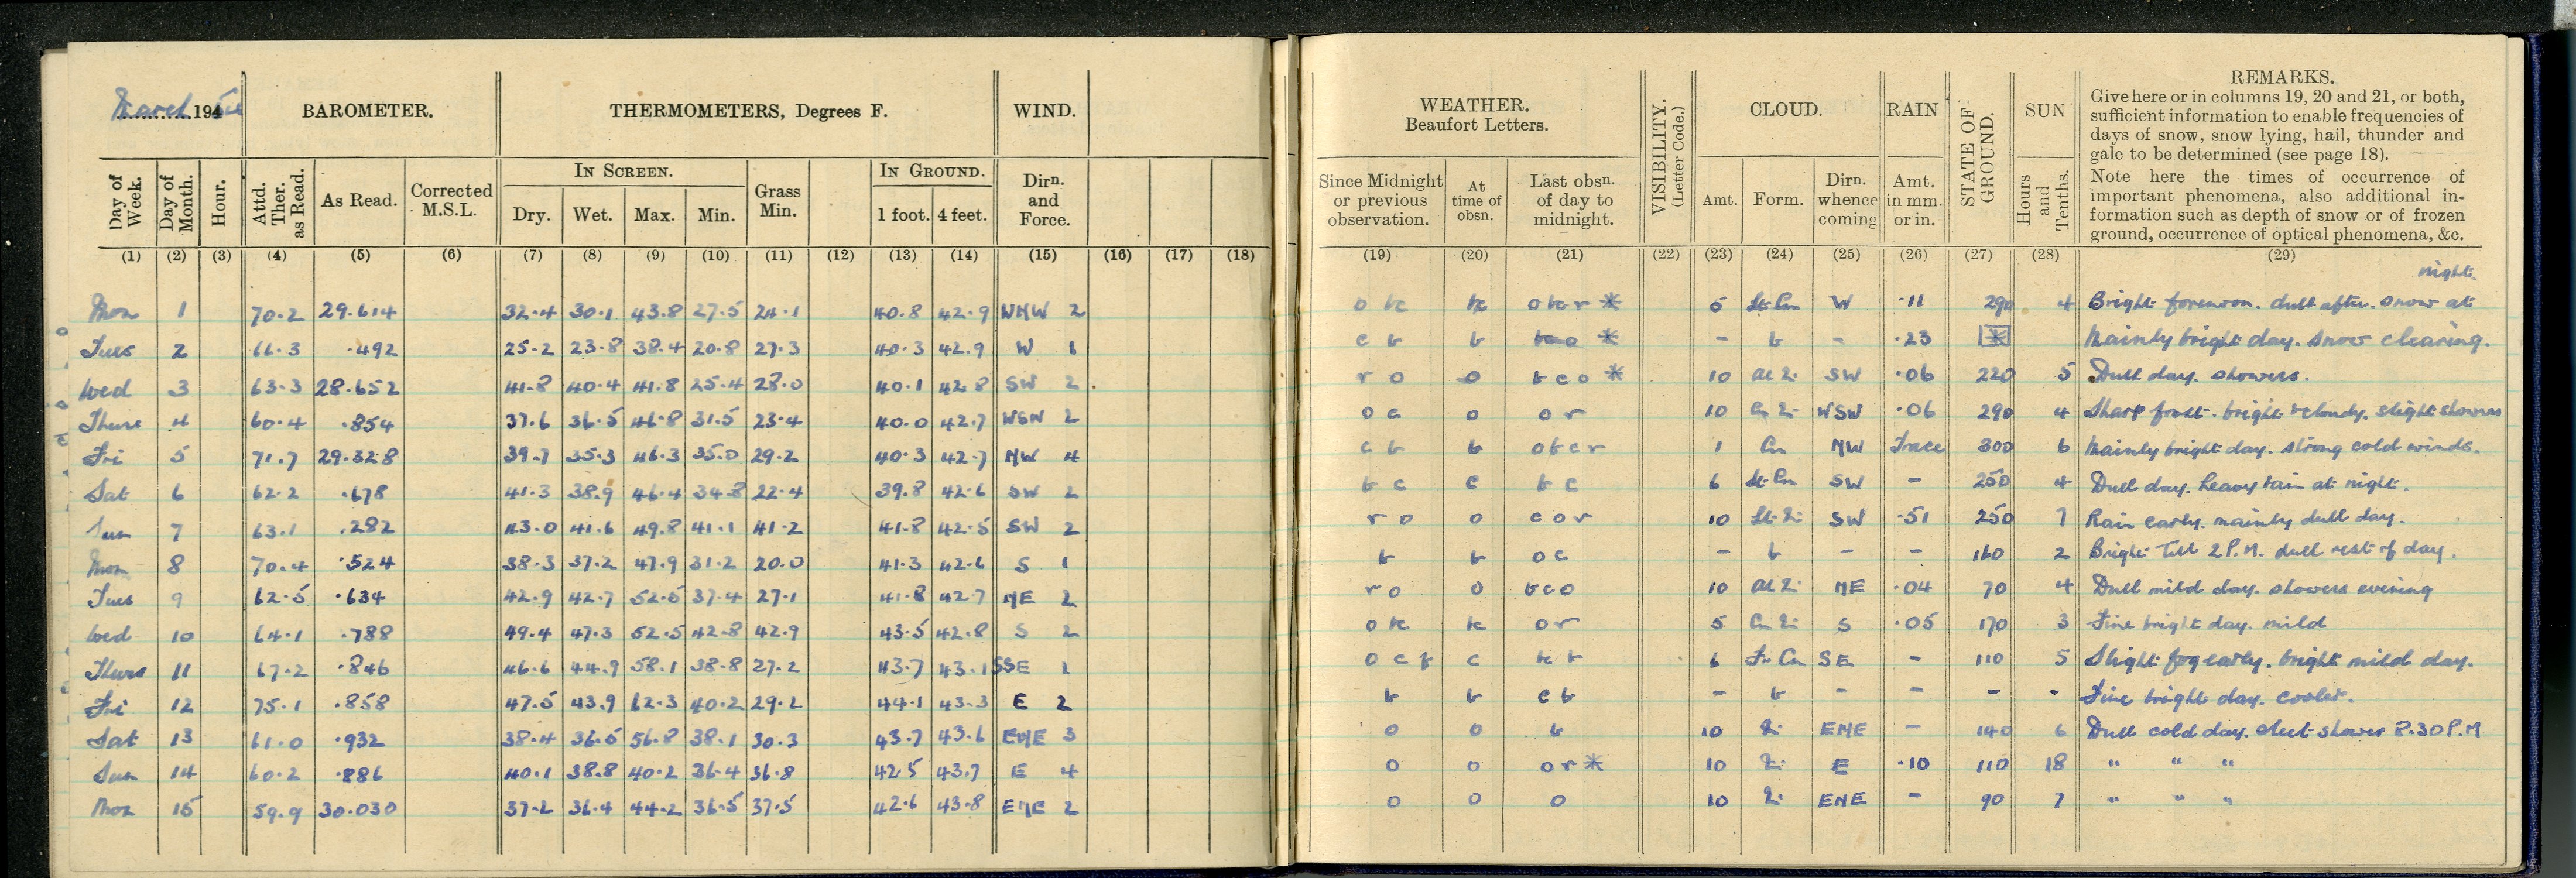 March 194
BAROMETER. THERMOMETERS, Degrees F. WIND. WEATHER. Beaufort Letters. VISIBILITY. (Letter Code.) CLOUD. RAIN STATE OF GROUND. SUN REMARKS.
Give here or in columns 19, 20 and 21, or both,
sufficient information to enable frequencies of
days of snow, snow lying, hail, thunder and
gale to be determined (see page 18).
Note here the times of occurrence of
important phenomena, also additional in-
formation such as depth of snow or of frozen
ground, occurrence of optical phenomena, &c.
Day of Week. Day of Month. Hour. Attd. Ther. as Read. As Read. Corrected M.S.L. IN SCREEN. Dry. Wet. Max. Min. Grass Min. IN GROUND. 1 foot. 4 feet. Dirn. and Force. Since Midnight or previous observation. At time of obsn. Last obsn. of day to midnight. Amt. Form. Dirn. whence coming Amt. in mm. or in. Hours and Tenths.
(1) (2) (3) (4) (5) (6) (7) (8) (9) (10) (11) (12) (13) (14) (15) (16) (17) (18) (19) (20) (21) (22) (23) (24) (25) (26) (27) (28) (29)
night.
Mon 1 70.2 29.614 32.4 30.1 43.8 27.5 24.1 40.8 42.9 WNW 2 o bc bc o bc r * 5 St-Cu W .11 290 4 Bright forenoon. dull after. snow at
Tues 2 61.3 .492 25.2 23.8 38.4 20.8 27.3 40.3 42.9 W 1 c b b * - b - .23 * Mainly bright day. snow clearing.
Wed 3 63.3 28.652 41.8 40.4 41.8 25.4 28.0 40.1 42.8 SW 2 r o o b c o * 10 SW .06 220 5 Dull day. showers.
Thurs 4 60.4 .854 37.6 36.5 46.8 31.5 23.4 40.0 42.7 WSW 2 o c o o r 10 WSW .06 290 4 Sharp frost. bright & cloudy. slight showers
Fri 5 71.7 29.328 39.7 35.3 46.3 35.0 29.2 40.3 42.7 NW 4 c b b o b c r 1 Cu NW Trace 300 6 Mainly bright day. strong cold winds.
Sat 6 62.2 .678 41.3 38.9 46.4 34.8 22.4 39.8 42.6 SW 2 b c c b c 6 St-Cu SW - 250 4 Dull day. heavy rain at night.
Sun 7 63.1 .282 43.0 41.6 49.8 41.1 41.2 41.8 42.5 SW 2 r o o c o r 10 SW .51 250 7 Rain early. mainly dull day.
Mon 8 70.4 .524 38.3 37.2 47.9 31.2 20.0 41.3 42.6 S 1 b b o c - b - - 160 2 Bright till 2 P.M. dull rest of day.
Tues 9 62.5 .634 42.9 42.7 52.5 37.4 27.1 41.8 42.7 NE 2 r o o b c o 10 NE .04 70 4 Dull mild day. showers evening
Wed 10 64.1 .788 49.4 47.3 52.5 42.8 42.9 43.5 42.8 S 2 o bc bc o r 5 S .05 170 3 Fine bright day. mild
Thurs 11 67.2 .846 46.6 44.9 58.1 38.8 27.2 43.7 43.1 SSE 1 o c f c bc b 6 Fr Cu SE - 110 5 Slight fog early. bright mild day.
Fri 12 75.1 .858 47.5 43.9 62.3 40.2 29.2 44.1 43.3 E 2 b b c b - b - - - - Fine bright day. cooler.
Sat 13 61.0 .932 38.4 36.5 56.8 38.1 30.3 43.7 43.6 ENE 3 o o b 10 ENE - 140 6 Dull cold day. sleet shower 8.30 P.M
Sun 14 60.2 .886 40.1 38.8 40.2 36.4 36.8 42.5 43.7 E 4 o o o r * 10 E .10 110 18 " " "
Mon 15 59.9 30.030 37.2 36.4 44.2 36.5 37.5 42.6 43.8 ENE 2 o o o 10 ENE - 90 7 " " "